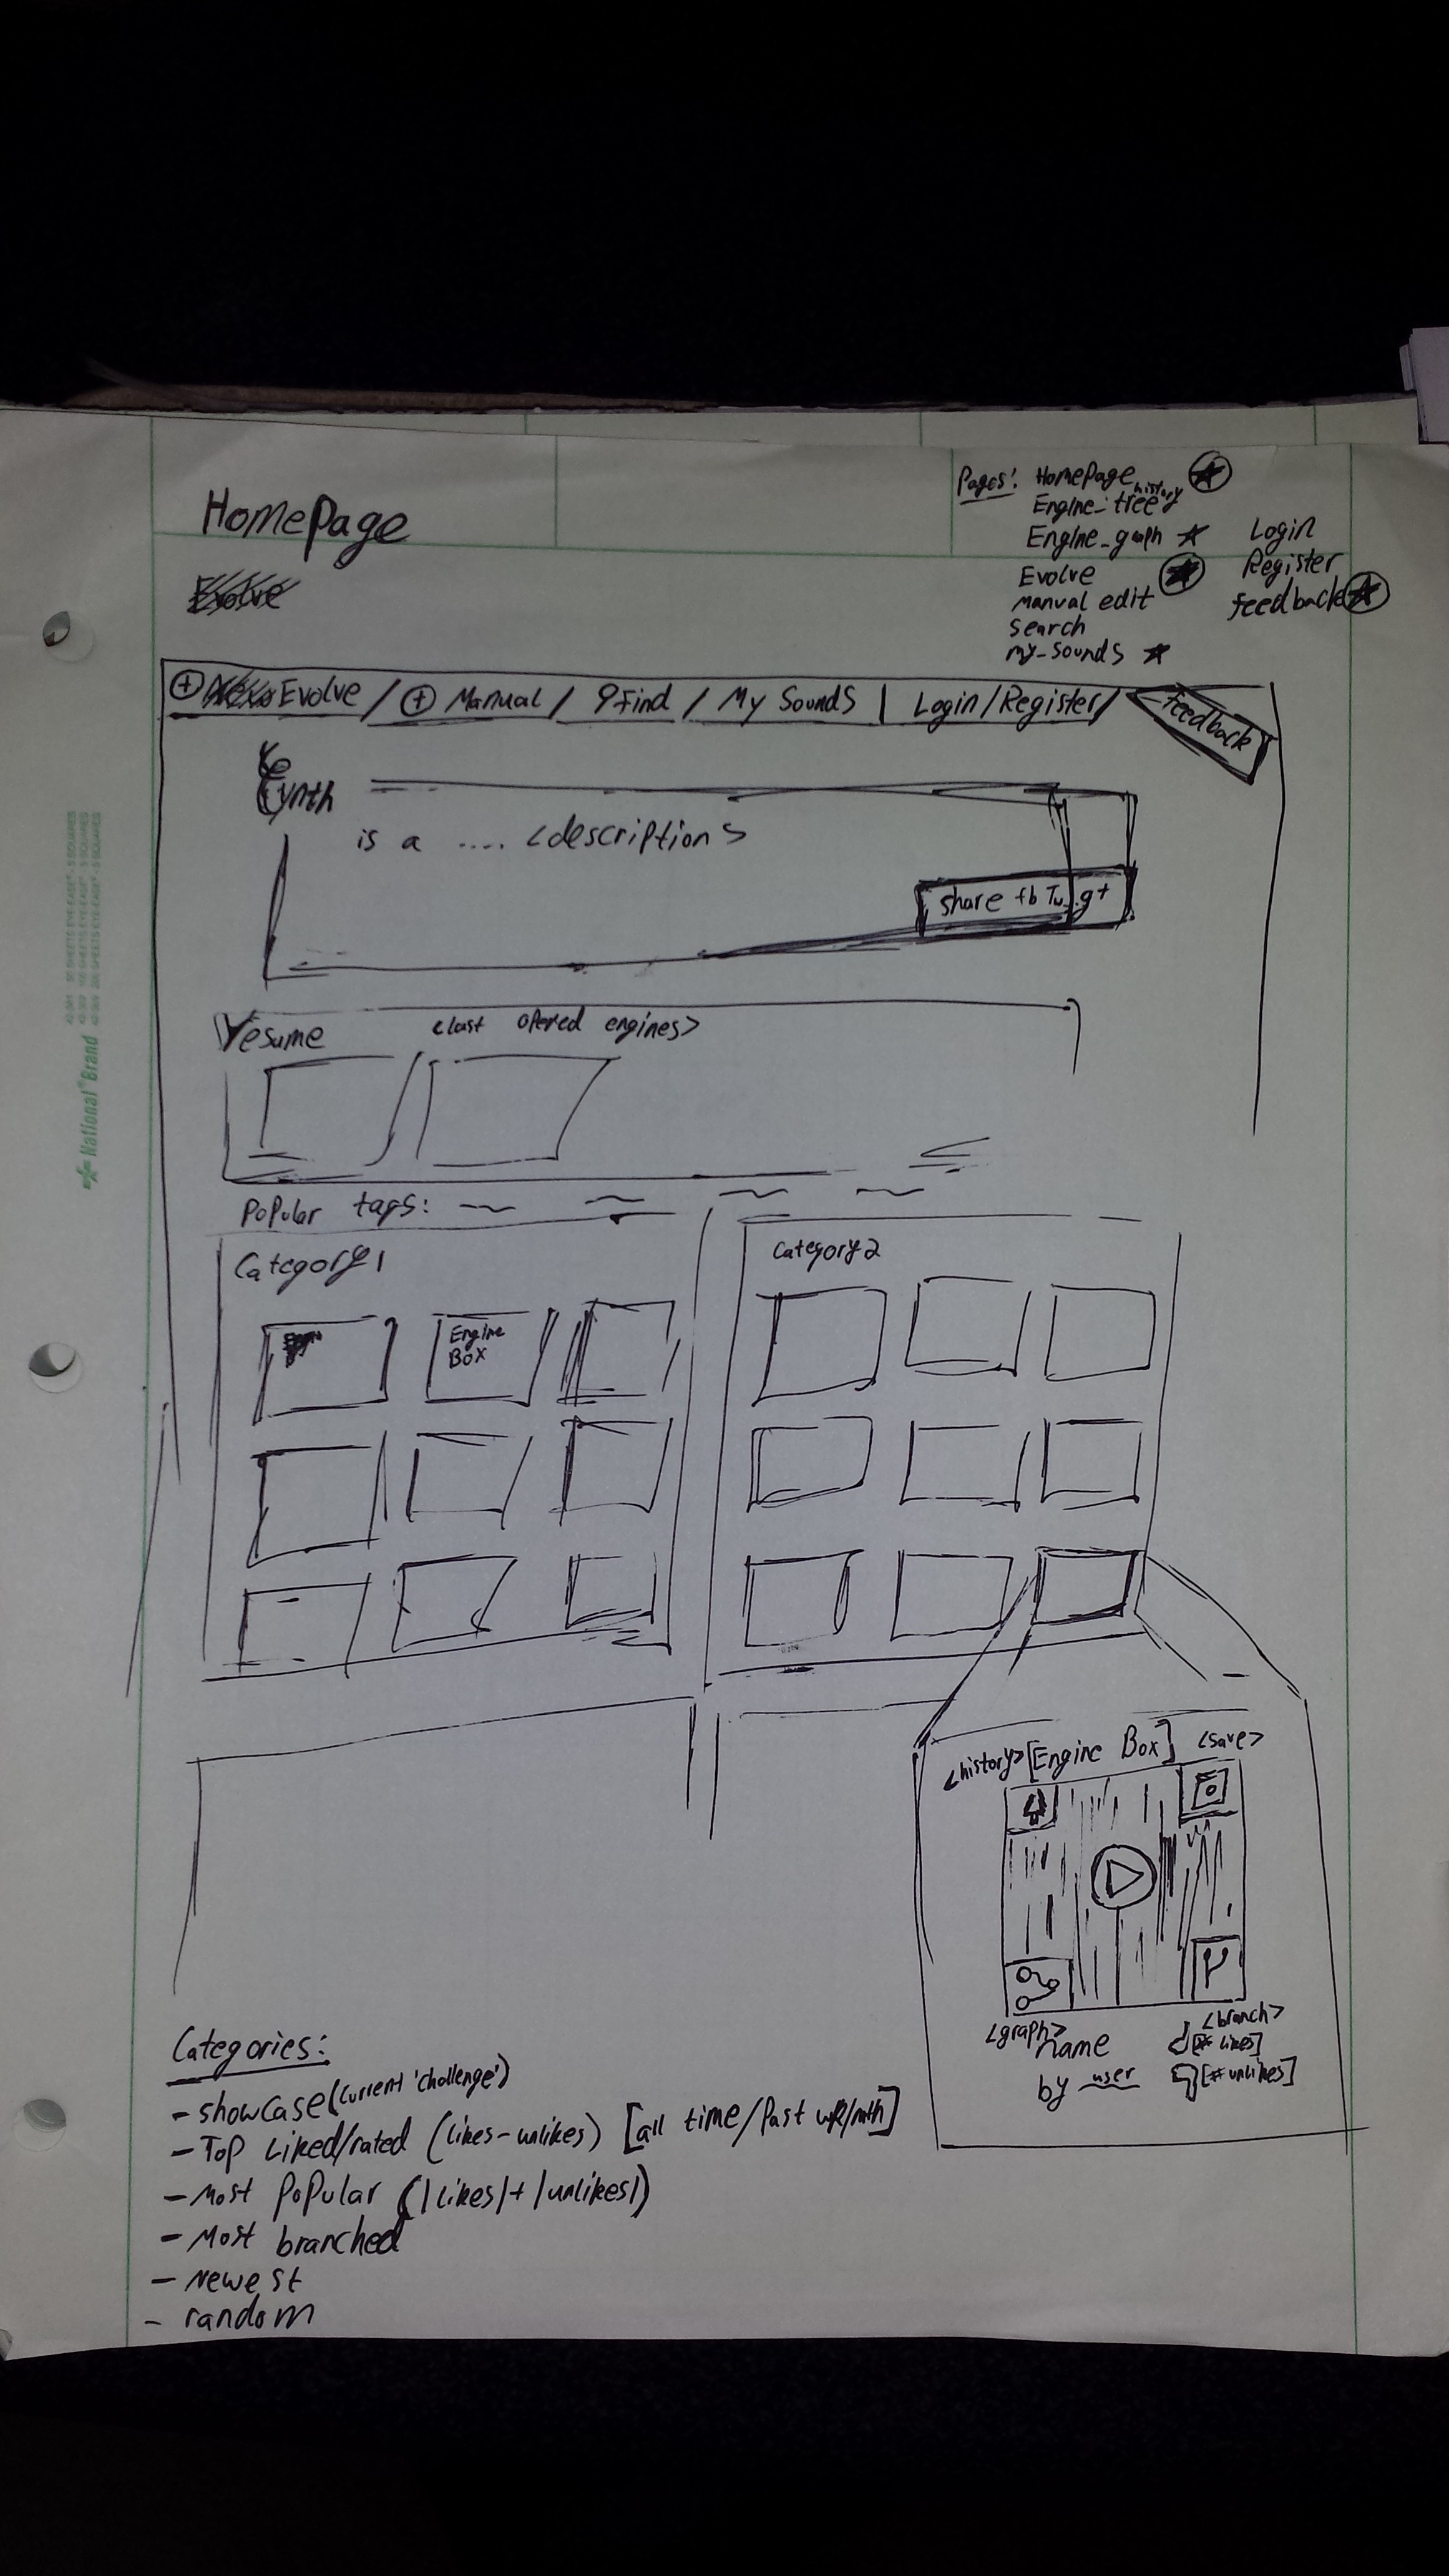 HomePage
Pages: HomePage
history
Engine_tree
Engine_graph
Evolve
manual edit
search
my_sounds
Login
Register
feedback
Evolve
Evolve / Manual / Find / My Sounds | Login/Register/
feedback
ynth
is a .... <description>
share fb Tw. g+
resume <last opened engines>
Popular tags:
Category 1
Category 2
Engine
Box
<history> [Engine Box] <save>
<graph>
<branch>
name
[# likes]
by user
[# unlikes]
Categories:
- showcase (current 'challenge')
- Top Liked/rated (likes-unlikes) [all time/Past wk/mth]
- Most Popular (|likes|+|unlikes|)
- Most branched
- Newest
- random
National® Brand